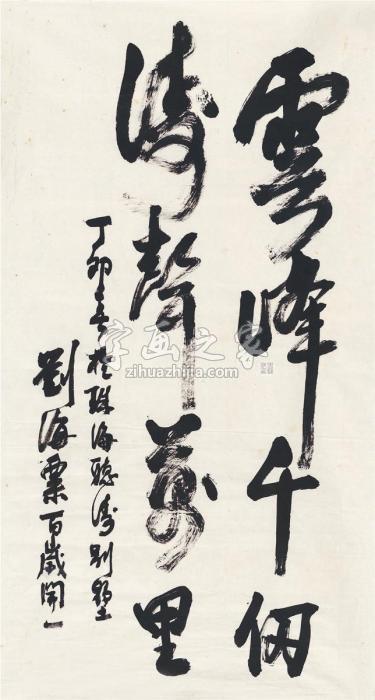 雲峰千仞
濤聲萬里
丁卯春於珠海聽濤別墅
劉海粟百歲開一
字画之家
zihuazhijia.com